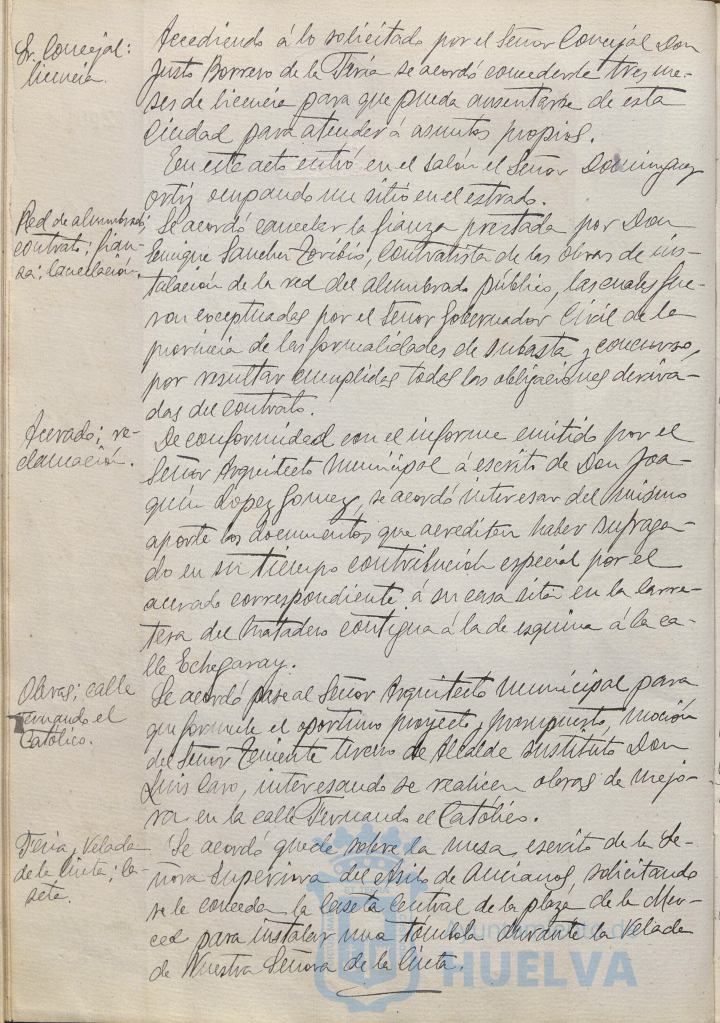 Sr. Concejal:
licencia.
Accediendo á lo solicitado por el Señor Concejal Don
Justo Borrero de la Feria se acordó concederle tres me-
ses de licencia para que pueda ausentarse de esta
Ciudad para atender á asuntos propios.
En este acto entró en el salón el Señor Dominguez
Ortiz ocupando un sitio en el estrado.
Red de alumbrado;
contrato; fian-
za; cancelación.
Se acordó cancelar la fianza prestada por Don
Enrique Sanchez Toribio, contratista de las obras de ins-
talación de la red del alumbrado público, las cuales fue-
ron exceptuadas por el Señor Gobernador Civil de la
provincia de las formalidades de subasta y concurso,
por resultar cumplidas todas las obligaciones deriva-
das del contrato.
Acerado; re-
clamación.
De conformidad con el informe emitido por el
Señor Arquitecto Municipal á escrito de Don Joa-
quín López Gomez, se acordó interesar del mismo
aporte los documentos que acreditan haber sufraga-
do en su tiempo contribución especial por el
acerado correspondiente á su casa sita en la carre-
tera del Matadero contigua á la de esquina á la ca-
lle Echegaray.
Obras; calle
Fernando el
Católico.
Se acordó pase al Señor Arquitecto Municipal para
que formule el oportuno proyecto y presupuesto, moción
del Señor Teniente tercero de Alcalde sustituto Don
Luis Caro, interesando se realicen obras de mejo-
ra en la calle Fernando el Católico.
Feria y Velada
de la Cinta; ca-
seta.
Se acordó quede sobre la mesa, escrito de la Se-
ñora Superiora del Asilo de Ancianos, solicitando
se le conceda la caseta central de la plaza de la Mer-
ced para instalar una tómbola durante la Velada
de Nuestra Señora de la Cinta.
Ayuntamiento de
HUELVA